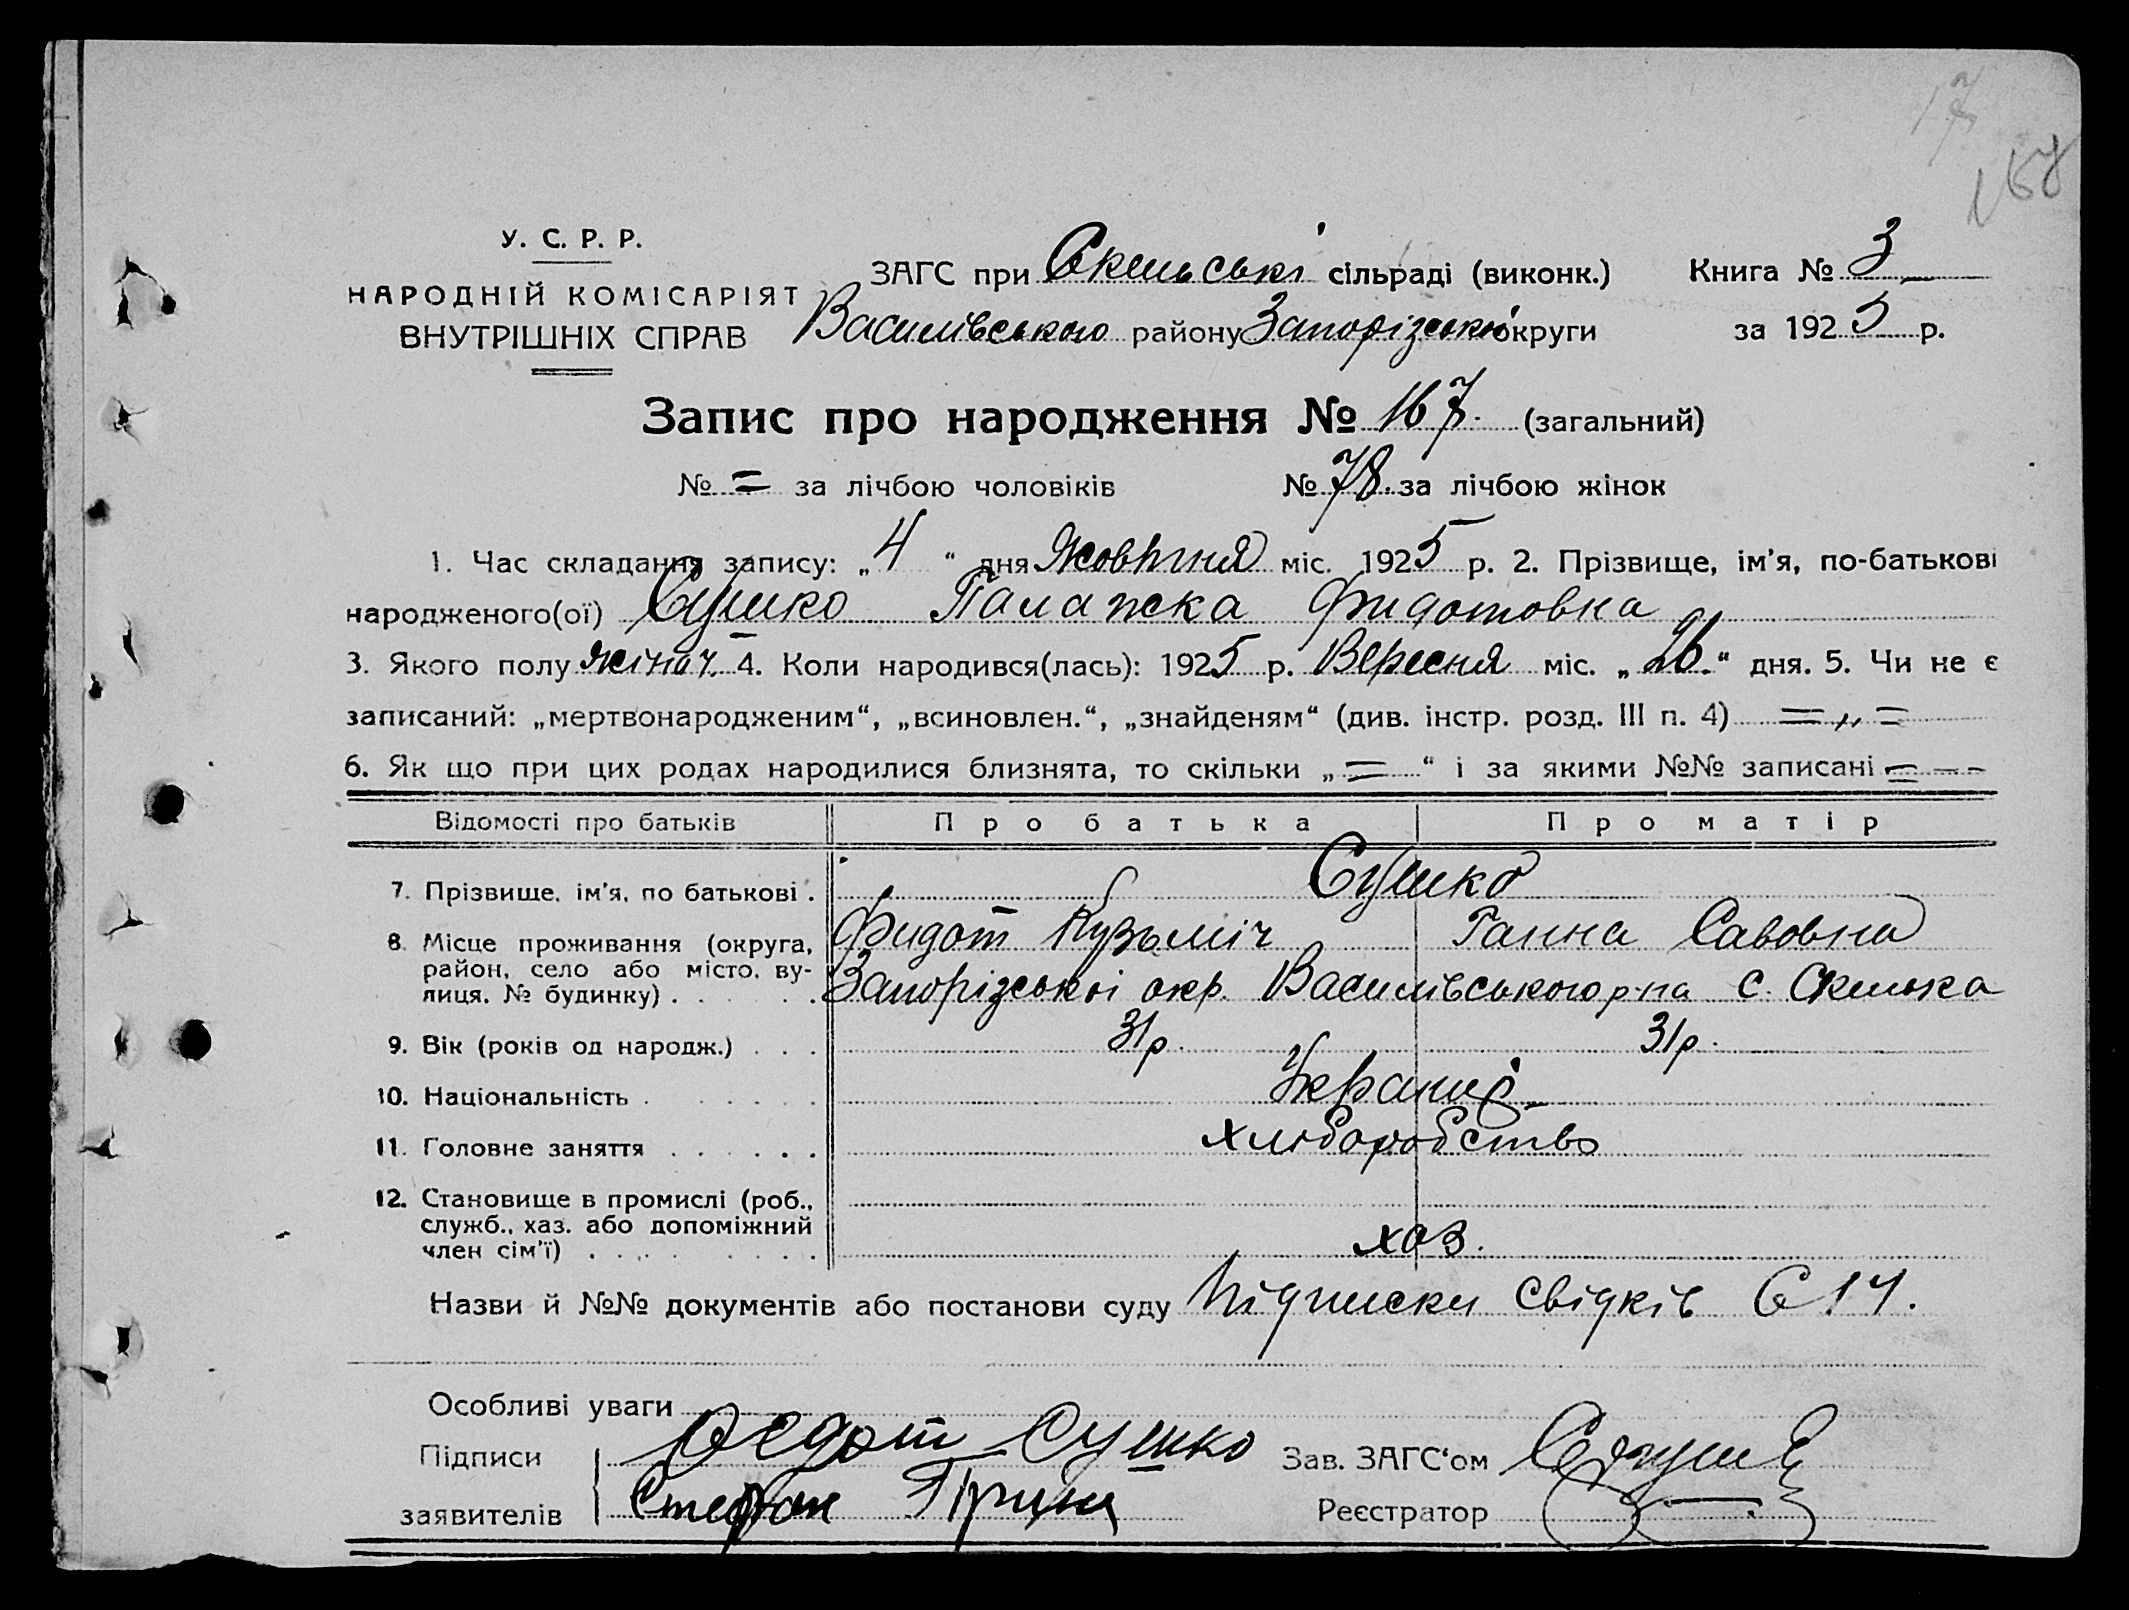 17
168
У. С. Р. Р.
НАРОДНІЙ КОМІСАРІЯТ
ВНУТРІШНІХ СПРАВ
ЗАГС при Скельські сільраді (виконк.) Книга № 3
Василівського району Запорізської округи за 1925 р.
Запис про народження № 167. (загальний)
№ = за лічбою чоловіків № 78. за лічбою жінок
1. Час складання запису: „4“ дня Жовтня міс. 1925 р. 2. Прізвище, ім'я, по-батькові
народженого(ої) Сушко Палажка Фидотовна
3. Якого полу жіноч. 4. Коли народився(лась): 1925 р. Вересня міс. „26.“ дня. 5. Чи не є
записаний: „мертвонародженим“, „всиновлен.“, „знайденям“ (див. інстр. розд. III п. 4) = „ =
6. Як що при цих родах народилися близнята, то скільки „=“ і за якими №№ записані = – –
Відомості про батьків Про батька Про матір
7. Прізвище, ім'я, по батькові . Сушко
Фидот Кузьміч Ганна Савовна
8. Місце проживання (округа,
район, село або місто, ву-
лиця, № будинку) . . . . . Запорізської окр. Василівського р-на с. Скелька
9. Вік (років од народж.) . . . 31 р. 31 р.
10. Національність . . . . . . Украинці
11. Головне заняття . . . . . . хліборобство
12. Становище в промислі (роб.,
служб., хаз. або допоміжний
член сім'ї) . . . . . . . . хоз.
Назви й №№ документів або постанови суду Підписки свідків
Особливі уваги
Підписи Федот Сушко Зав. ЗАГС'ом
заявителів Стефан Реєстратор